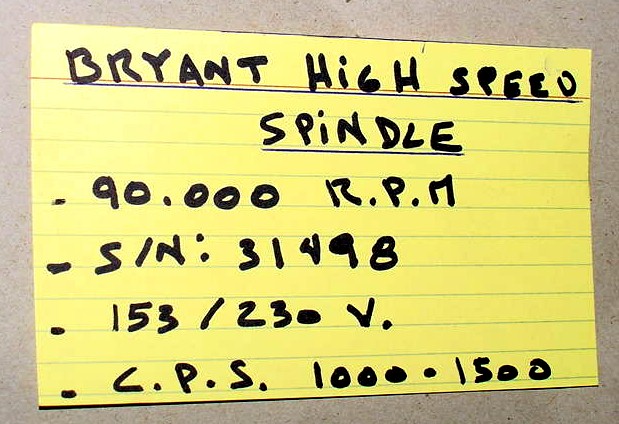 BRYANT HiGH SPEED
SPiNDLE
- 90.000 R.P.M
- S/N: 31498
- 153/230 V.
- C.P.S. 1000-1500